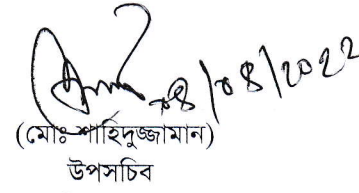 ০৪/০৪/২০২২
(মোঃ শাহিদুজ্জামান)
উপসচিব